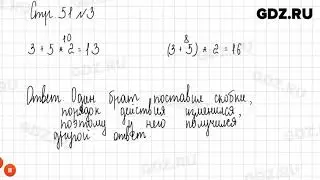 GDZ.RU
Стр. 51 №3
10
3 + 5 * 2 = 13
8
(3 + 5) * 2 = 16
Ответ. Один брат поставил скобки,
порядок действия изменился,
поэтому у него получился
другой ответ